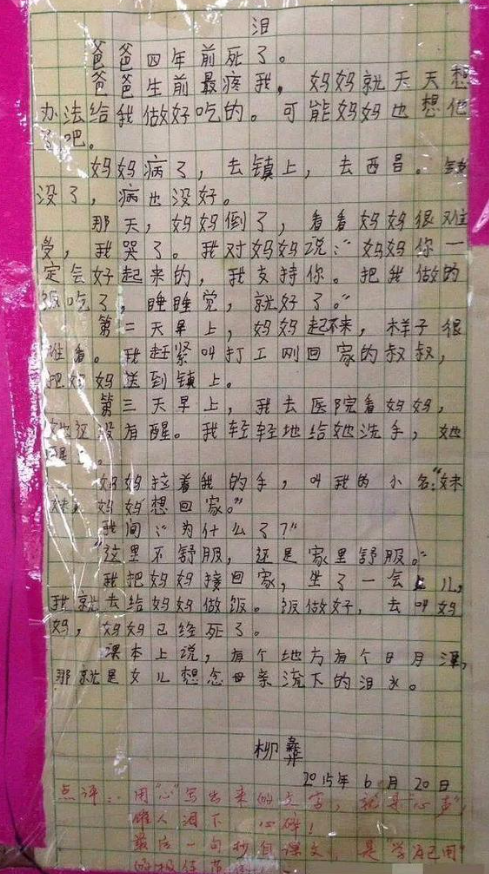 泪
爸爸四年前死了。
爸爸生前最疼我，妈妈就天天想
办法给我做好吃的。可能妈妈也想他
了吧。
妈妈病了，去镇上，去西昌。钱
没了，病也没好。
那天，妈妈倒了，看看妈妈很难
受，我哭了。我对妈妈说："妈妈你一
定会好起来的，我支持你。把我做的
饭吃了，睡睡觉，就好了。"
第二天早上，妈妈起不来，样子很
难看。我赶紧叫打工刚回家的叔叔，
把妈妈送到镇上。
第三天早上，我去医院看妈妈，
她还没有醒。我轻轻地给她洗手，她
醒了。
妈妈拉着我的手，叫我的小名："妹
妹，妈妈想回家。"
我问："为什么了？"
"这里不舒服，还是家里舒服。"
我把妈妈接回家，坐了一会儿，
我就去给妈妈做饭。饭做好，去叫妈
妈，妈妈已经死了。
课本上说，有个地方有个日月潭，
那就是女儿想念母亲流下的泪水。
柳彝
2015年6月20日
点评：用"心"写出来的文字，就是心声，
催人泪下 心碎！
最后一句抄自课文，是"学而己用"